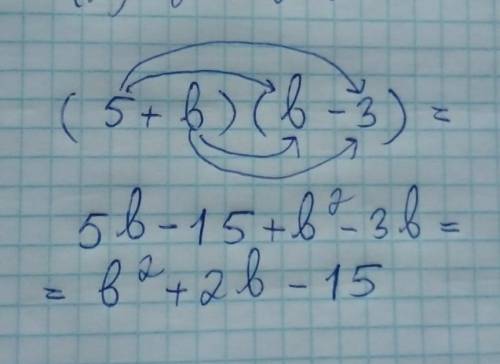 (5 + b)(b - 3) =
5b - 15 + b² - 3b =
= b² + 2b - 15